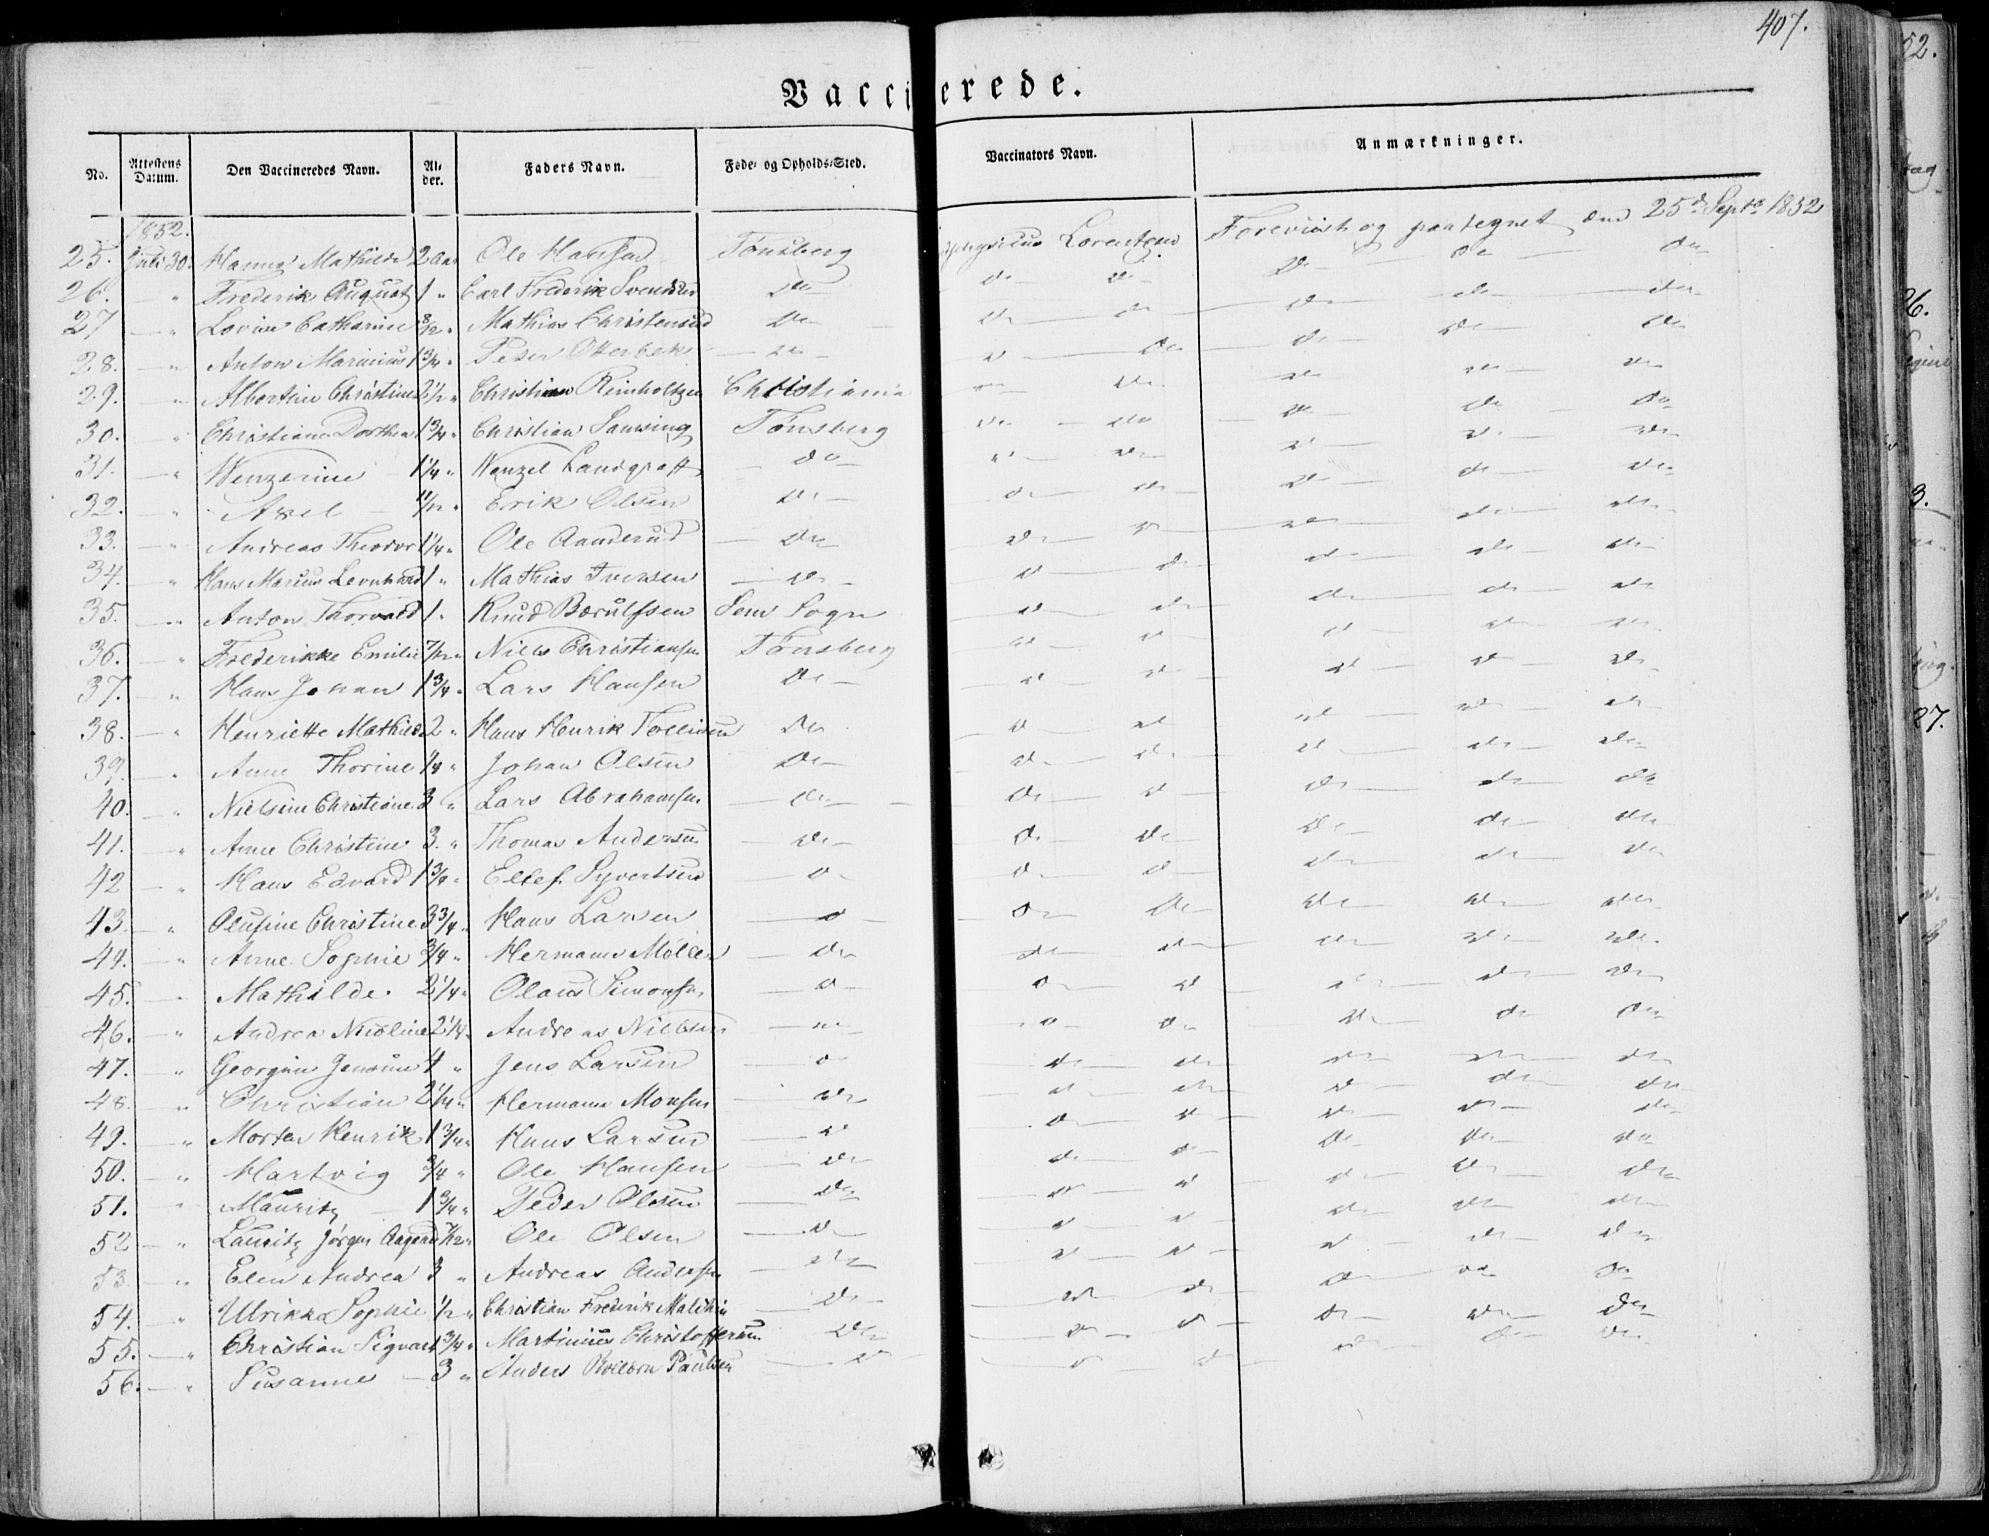 407.
Vaccinerede.
No. Attestens Datum. Den Vaccineredes Navn. Alder. Faders Navn. Føde- og Opholds-Sted. Vaccinators Navn. Anmærkninger.
1852.
25. Juli 30. Hanna Mathilde 2 Aar Ole Hansen Tønsberg Lorentzen Foreviist og paategnet den 25de Septbr 1852
26. " Frederik August 1 " Carl Frederik Svendsen do do do do do do
27 — " Lovise Catharine 8/12 " Mathias Christensen do do do do do do
28. — " Anton Marinius 1 3/4 " Peder Otterbek — do do do do do do
29. — " Albertine Christine 2 1/2 " Christian Reinholtzen Christiania do do do do do
30. — " Christiane Dorthea 1 3/4 " Christian Tønsberg do do do do do
31. — " Wenzerine — 1 1/4 " Wenzel Landgraff — do — do do do do do
32. — " Axel — 11/12 " Erik Olsen do — do do do do do
33. — " Andreas Theodor 1 1/4 " Ole Aanderud — do do do do do do
34. — " Hans Marius Leonhard 1 " Mathias Iversen — do — do do do do do
35. — " Anton Thorvald 1 " Knud Børulfsen Sem Sogn do do do do do
36. — " Frederikke Emilie 7/12 " Niels Christiansen Tønsberg do do do do do
37. — " Hans Johan 1 3/4 " Lars Hansen do — do do do do do
38. — " Henriette Mathilde 2 " Hans Henrik Tollefsen do do do do do do
39. — " Anne Thorine 1/4 " Johan Olsen do — do do do do do
40. — " Nielsine Christiane 3 " Lars Abrahamsen — do — do do do do do
41. — " Anne Christine 3. " Thomas Andersen do — do do do do do
42 — " Hans Edvard 1 3/4 " Ellef Syvertsen — do do do do do do
43. — " Olufine Christine 3 3/4 " Hans Larsen — do — do do do do do
44. — " Anne Sophie 3/4 " Hermann Møller — do do do do do do
45. — " Mathilde 2 1/4 " Olaus Simonsen — do — do do do do do
46. — " Andrea Nicoline 2 1/4 " Andreas Nielsen — do — do do do do do
47. — " Georgine Jensine 4 " Jens Larsen — do do do do do do
48. — " Christian 2 1/4 " Hermann Monsen — do do do do do do
49. — " Morten Henrik 1 3/4 " Hans Larsen — do do do do do do
50. — " Hartvig 3/4 " Ole Hansen — do do do do do do
51. — " Mauritz — 1 3/4 " Peder Olsen — do do do do do do
52 — " Lauritz Jørgen Aagaard 7/12 " Ole Olsen — do — do do do do do
53 — " Elen Andrea 3 " Andreas Andersen — do do do do do do
54. — " Ulrikka Sophie 1/2 " Christian Frederik — do — do do do do do
55. — " Christian Sigvard 3/4 " Martinius Christoffersen — do do do do do do
56. — " Susanne — 3 " Anders Paulsen — do do do do do do